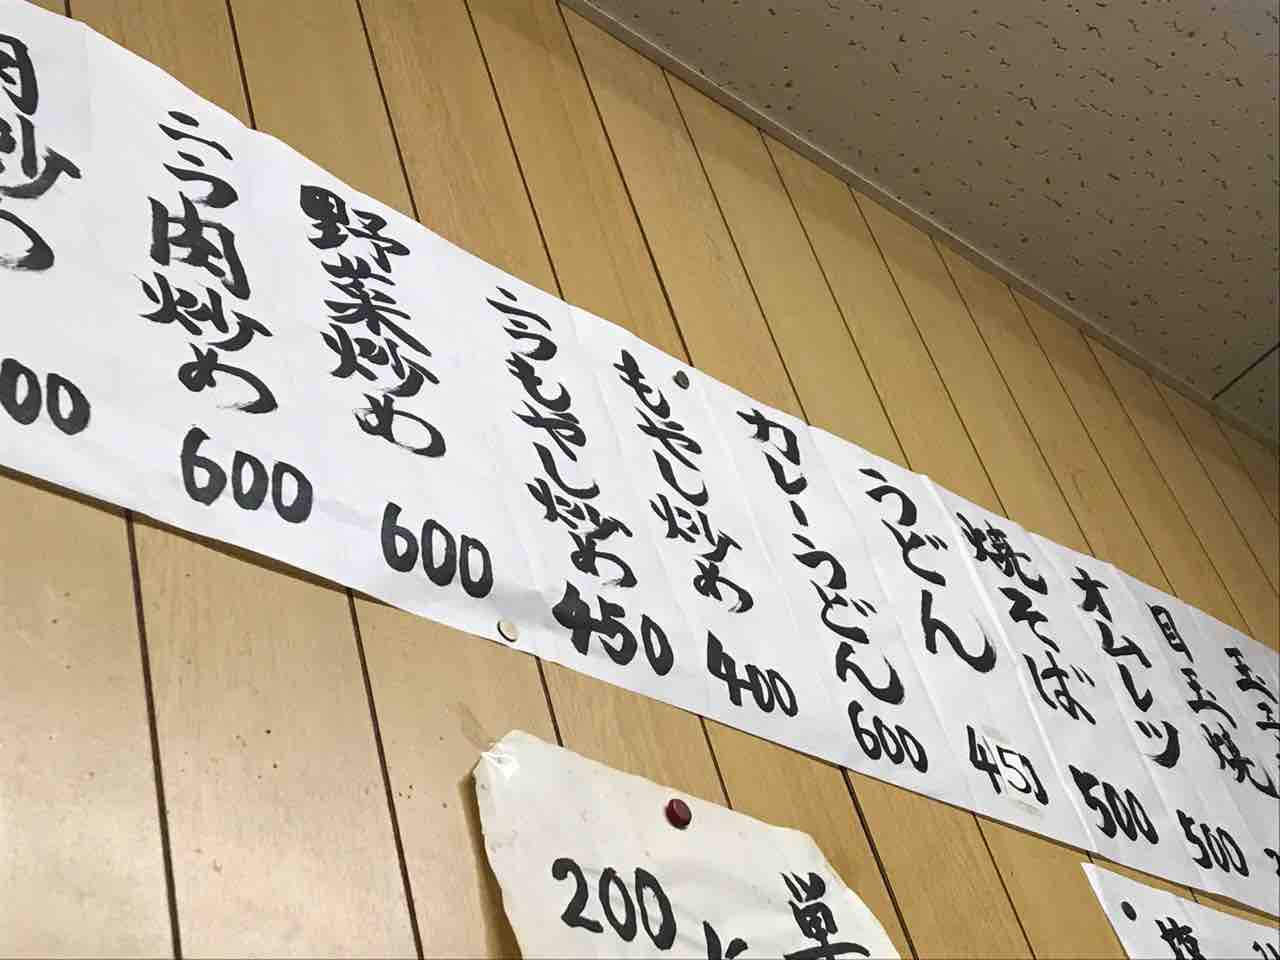 目玉焼
オムレツ 500
焼そば 500
うどん 450
カレーうどん 600
もやし炒め 400
ニラもやし炒め 450
野菜炒め 600
ニラ肉炒め 600
肉炒め 00
200